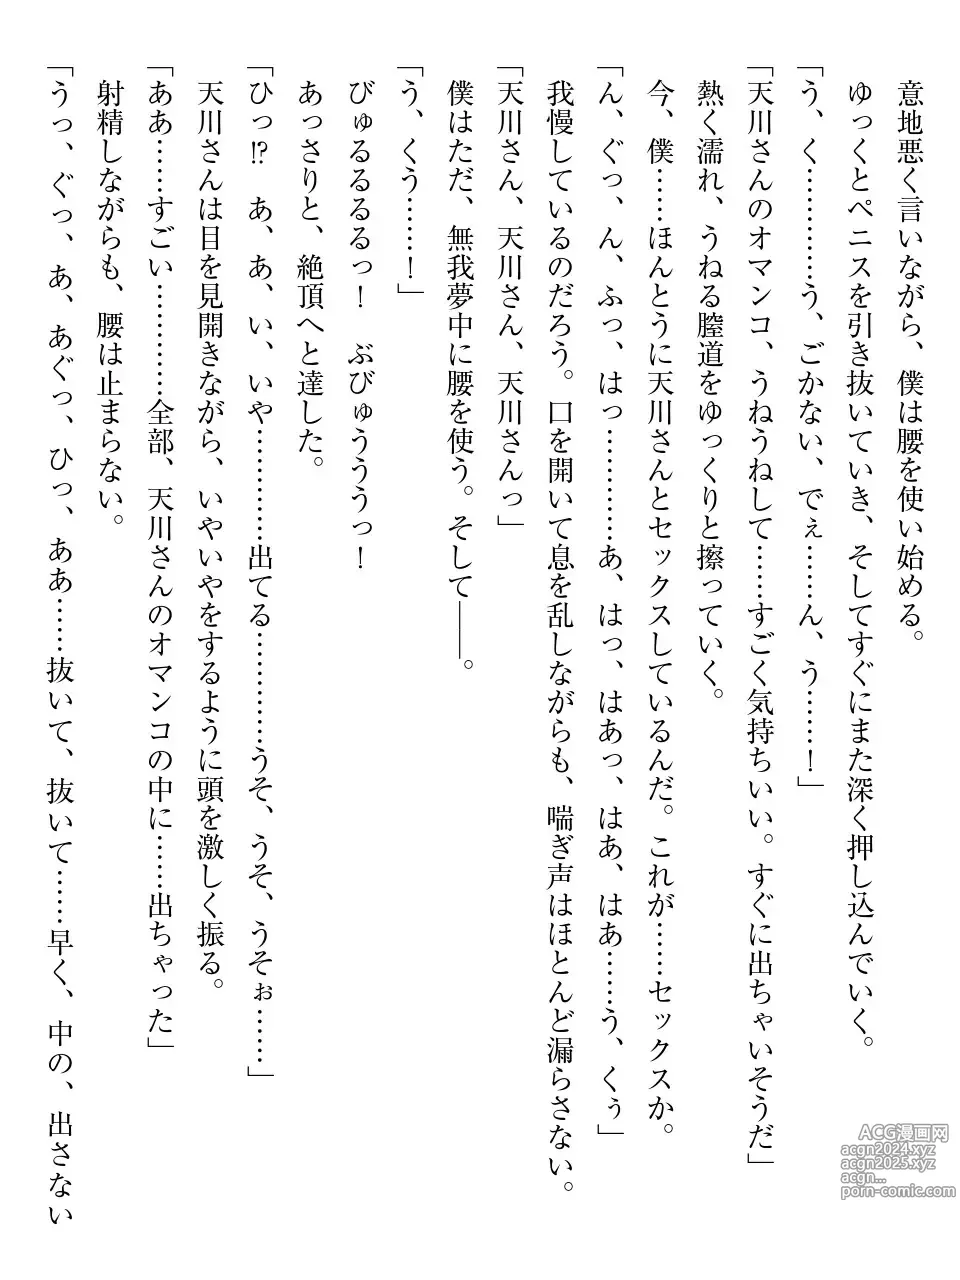 意地悪く言いながら、僕は腰を使い始める。
ゆっくとペニスを引き抜いていき、そしてすぐにまた深く押し込んでいく。
「う、く…………う、ごかない、でぇ……ん、う……！」
「天川さんのオマンコ、うねうねして……すごく気持ちいい。すぐに出ちゃいそうだ」
熱く濡れ、うねる膣道をゆっくりと擦っていく。
今、僕……ほんとうに天川さんとセックスしているんだ。これが……セックスか。
「ん、ぐっ、ん、ふっ、はっ…………あ、はっ、はあっ、はあ、はあ……う、くぅ」
我慢しているのだろう。口を開いて息を乱しながらも、喘ぎ声はほとんど漏らさない。
「天川さん、天川さん、天川さんっ」
僕はただ、無我夢中に腰を使う。そして――。
「う、くう……！」
びゅるるるるっ！　ぶびゅうううっ！
あっさりと、絶頂へと達した。
「ひっ⁉　あ、あ、い、いや…………出てる…………うそ、うそ、うそぉ……」
天川さんは目を見開きながら、いやいやをするように頭を激しく振る。
「ああ……すごい…………全部、天川さんのオマンコの中に……出ちゃった」
射精しながらも、腰は止まらない。
「うっ、ぐっ、あ、あぐっ、ひっ、ああ……抜いて、抜いて……早く、中の、出さない
ACG漫画网
acgn2024.xyz
acgn2025.xyz
acgn...
porn-comic.com